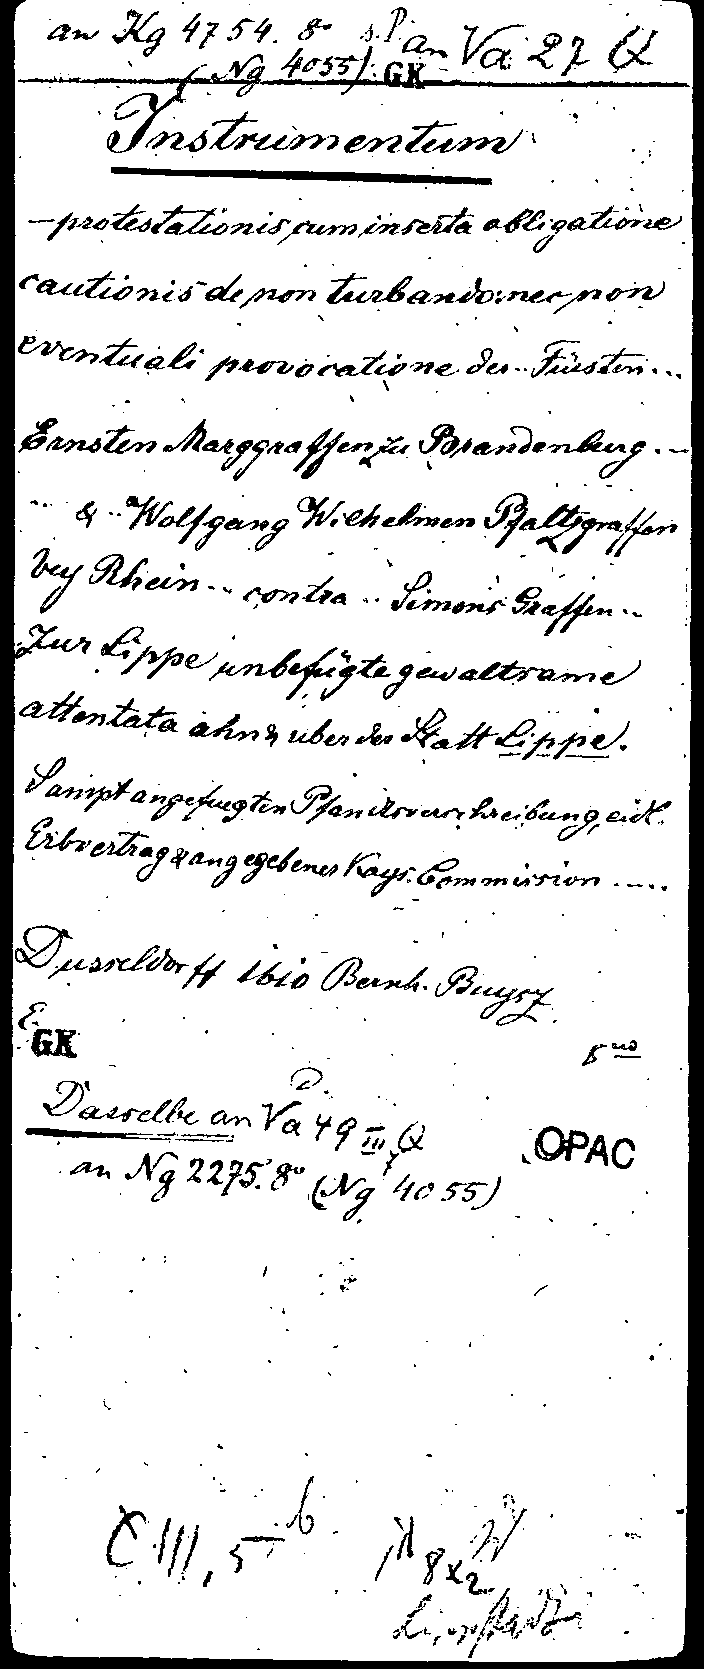 an Kg 4754. 8° s. P. an Va 27 Q
(Ng 4055) GK
Instrumentum
— protestationis, cum inserta obligatione
cautionis de non turbando: nec non
eventuali provocatione der.. Füsten...
Ernsten Marggraffen zu Brandenburg...
.. & .. Wolfgang Wilhelmen Pfaltzgraffen
bey Rhein.. contra .. Simons Graffen..
Zur Lippe unbefügte gewaltsame
attentata ahn & uber der Statt Lippe.
Sampt angefuegten Pfandsverschreibung, eidl.
Erbvertrag & angegebener Kays. Commission .....
Dusseldorff 1610 Bernh. Buysz
E.
GK
D.
Dasselbe an Va 49 III, Q
OPAC
an Ng 2275. 8° (Ng 4055)
C III, 5 b
8 x 2
Lippstadt